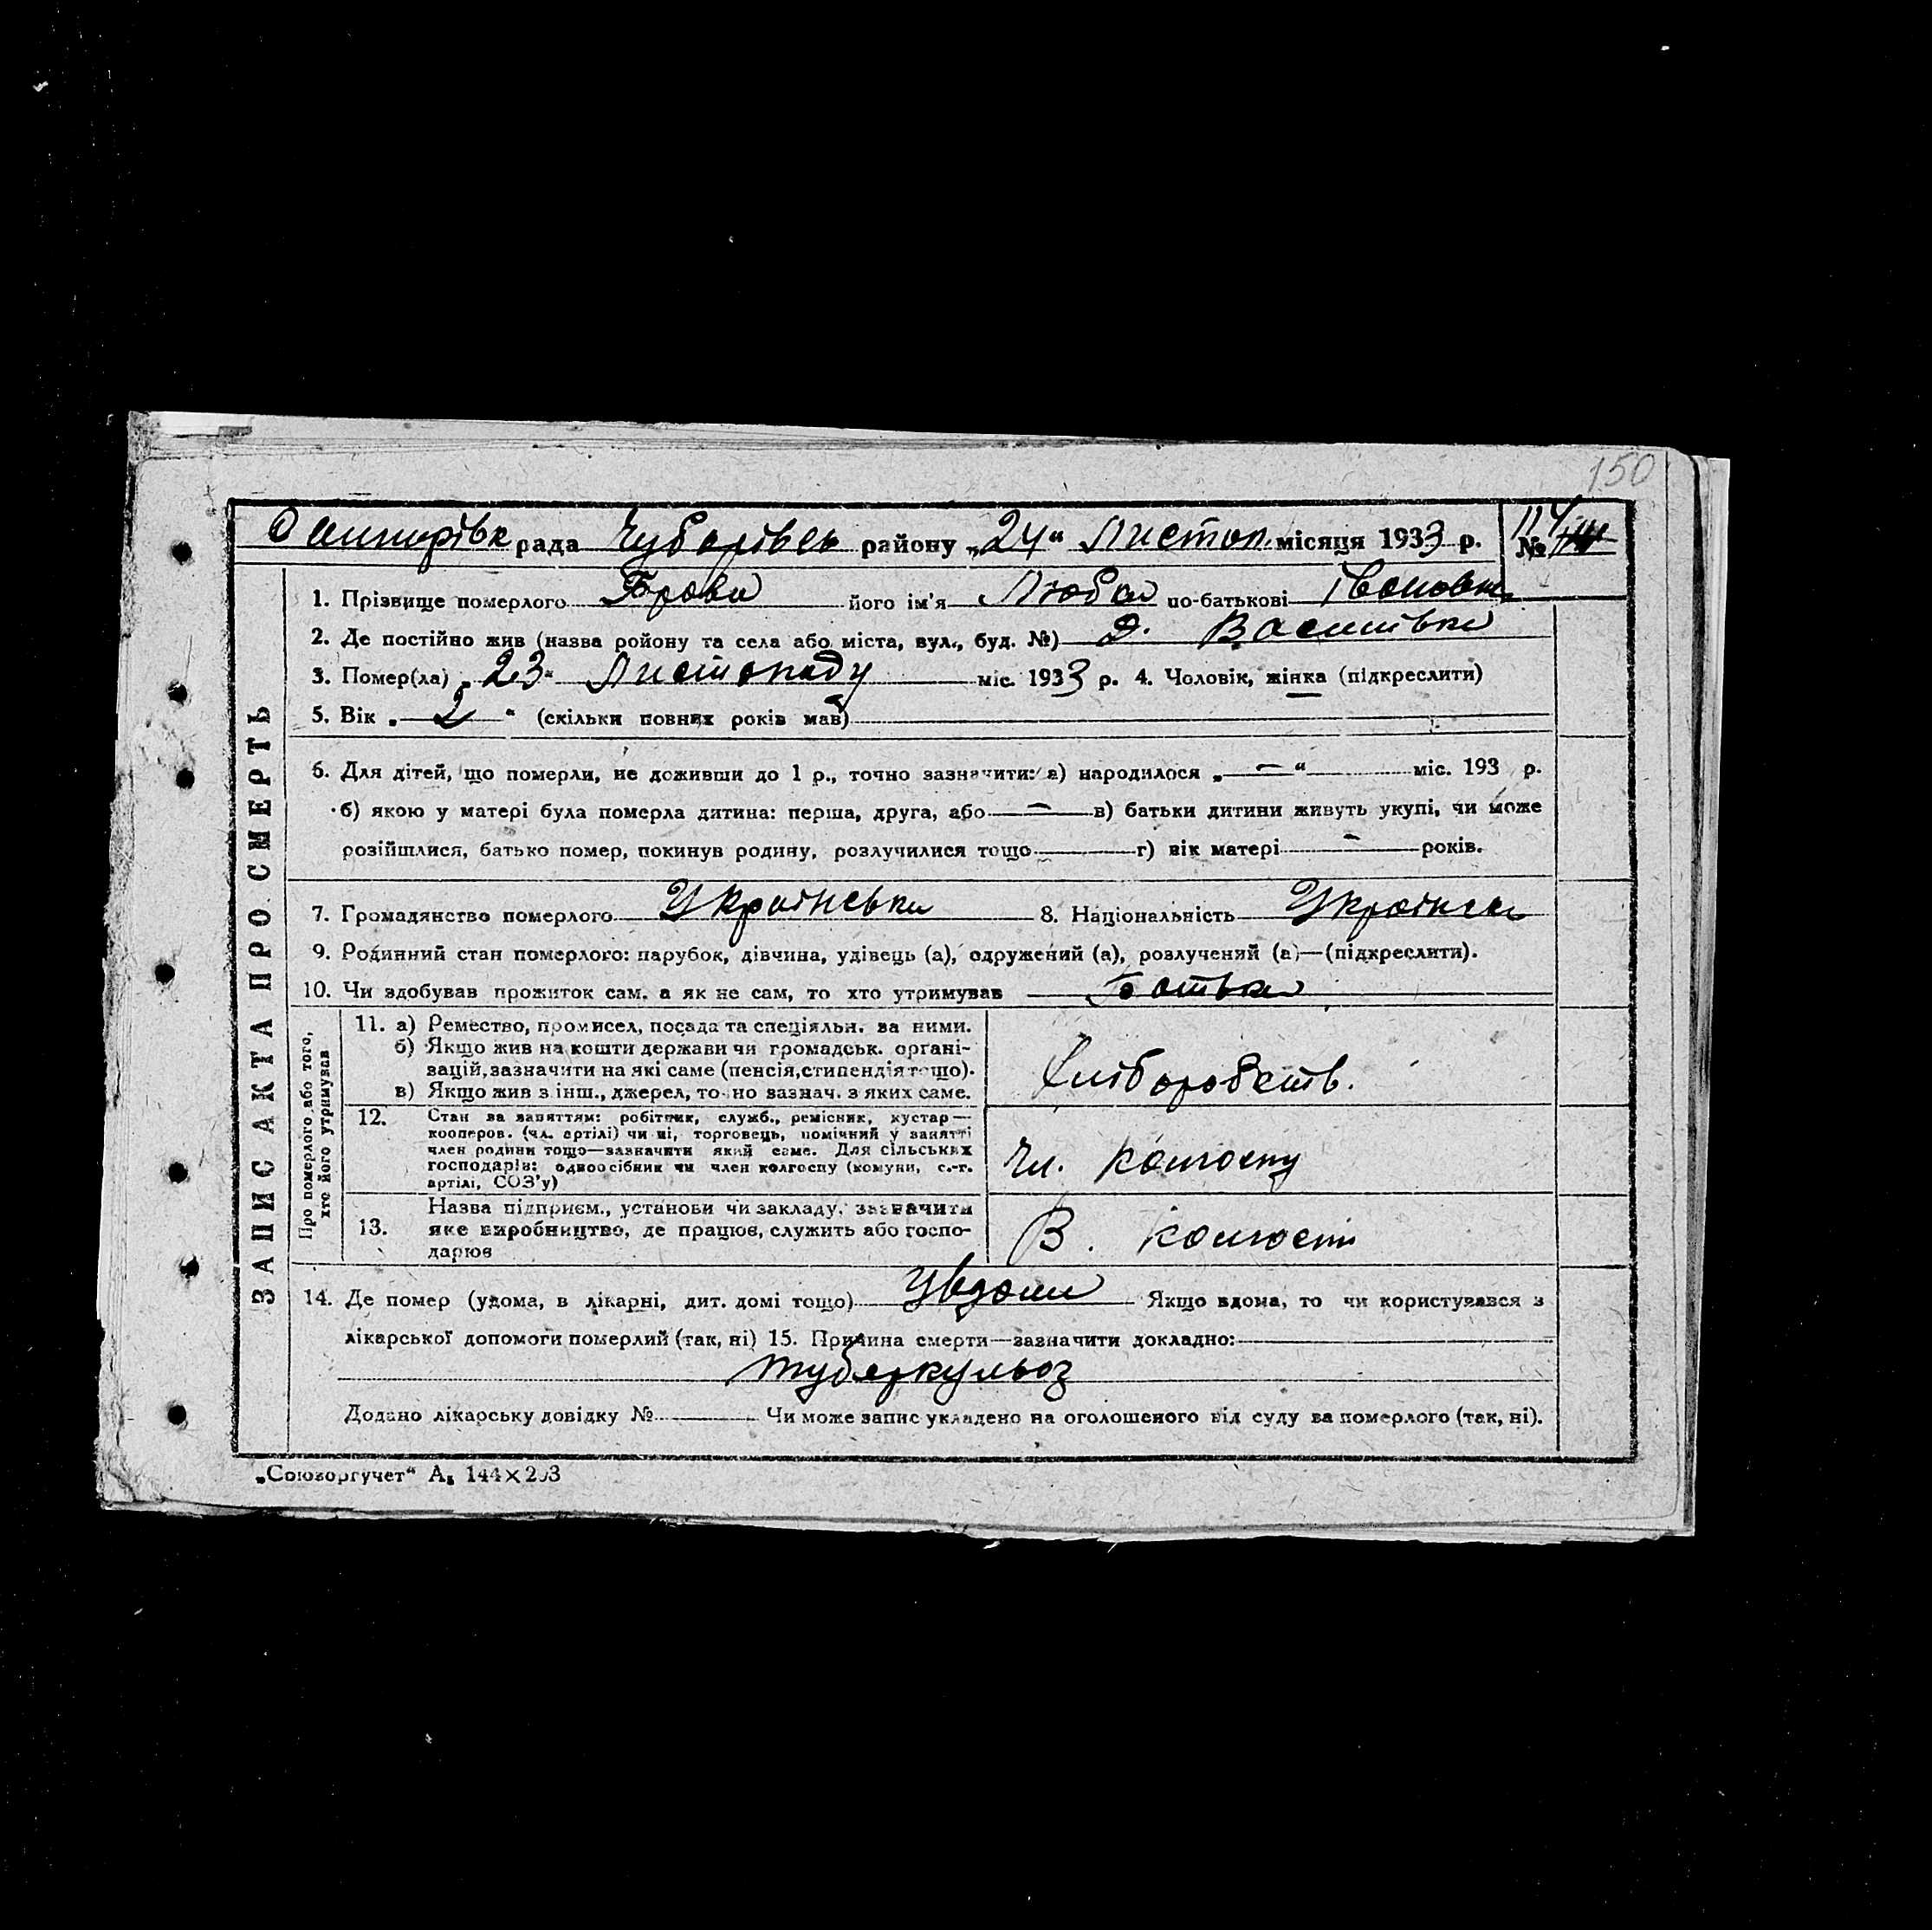 150
рада Чубарівсь району „24“ Листоп. місяця 1933 р. №
ЗАПИС АКТА ПРО СМЕРТЬ
1. Прізвище померлого Брова його ім'я Люба по-батькові Івановна
2. Де постійно жив (назва ройону та села або міста, вул., буд. №) д. Василівка
3. Помер(ла) „23“ Листопаду міс. 1933 р. 4. Чоловік, жінка (підкреслити)
5. Вік „2“ (скільки повних років мав)
6. Для дітей, що померли, не доживши до 1 р., точно зазначити: а) народилося „—“ міс. 193 р.
б) якою у матері була померла дитина: перша, друга, або — в) батьки дитини живуть укупі, чи може
розійшлися, батько помер, покинув родину, розлучилися тощо г) вік матері - років.
7. Громадянство померлого Українська 8. Національність Українск
9. Родинний стан померлого: парубок, дівчина, удівець (а), одружений (а), розлучений (а)—(підкреслити).
10. Чи здобував прожиток сам, а як не сам, то хто утримував Батька
Про померлого або того,
хто його утримував
11. а) Ремество, промисел, посада та спеціяльн. за ними.
б) Якщо жив на кошти держави чи громадськ. органі-
зацій, зазначити на які саме (пенсія, стипендія тощо).
в) Якщо жив з інш., джерел, точно зазнач. з яких саме.
Хліборобств.
12. Стан за заняттям: робітник, служб., ремісник, кустар—
кооперов. (чл. артілі) чи ні, торговець, помічний у занятті
член родини тощо—зазначити який саме. Для сільських
господарів: одноосібник чи член колгоспу (комуни, с.-г.
артілі, СОЗ'у)
Чл. колгоспу
13. Назва підприєм., установи чи закладу, зазначити
яке виробництво, де працює, служить або госпо-
дарює
В. колгоспі
14. Де помер (удома, в лікарні, дит. домі тощо) Увдома Якщо вдома, то чи користувався з
лікарської допомоги померлий (так, ні) 15. Причина смерти—зазначити докладно:
туберкульоз
Додано лікарську довідку № Чи може запис укладено на оголошеного від суду за померлого (так, ні).
„Союзоргучет“ А₅ 144×203